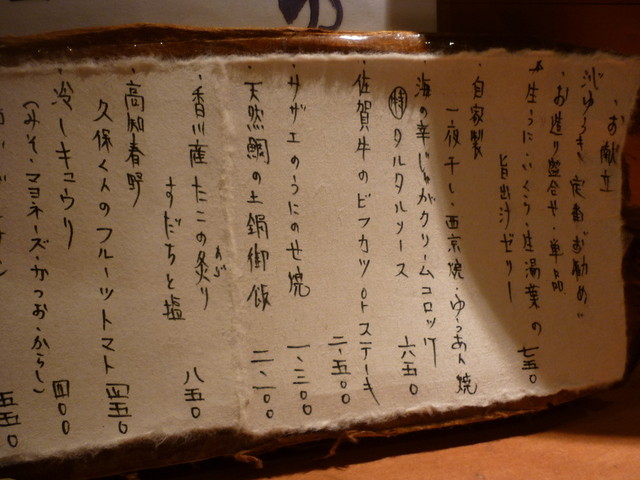 お献立
ゆうき 定番 お勧め
・お造り盛合せ・単品
・生うに・いくら・生湯葉の
旨出汁ゼリー 七五〇
・自家製
一夜干し・西京焼・ゆうあん焼
・海の幸じゃがクリームコロッケ
特タルタルソース 六五〇
・佐賀牛のビフカツorステーキ
二、五〇〇
・サザエのうにのせ焼 一、三〇〇
・天然鯛の土鍋御飯 二、一〇〇
・香川産たこの炙り
あぶ
すだちと塩 八五〇
・高知春野
久保くんのフルーツトマト 四五〇
・冷しキュウリ 四〇〇
(みそ・マヨネーズ・かつお・からし)
五五〇